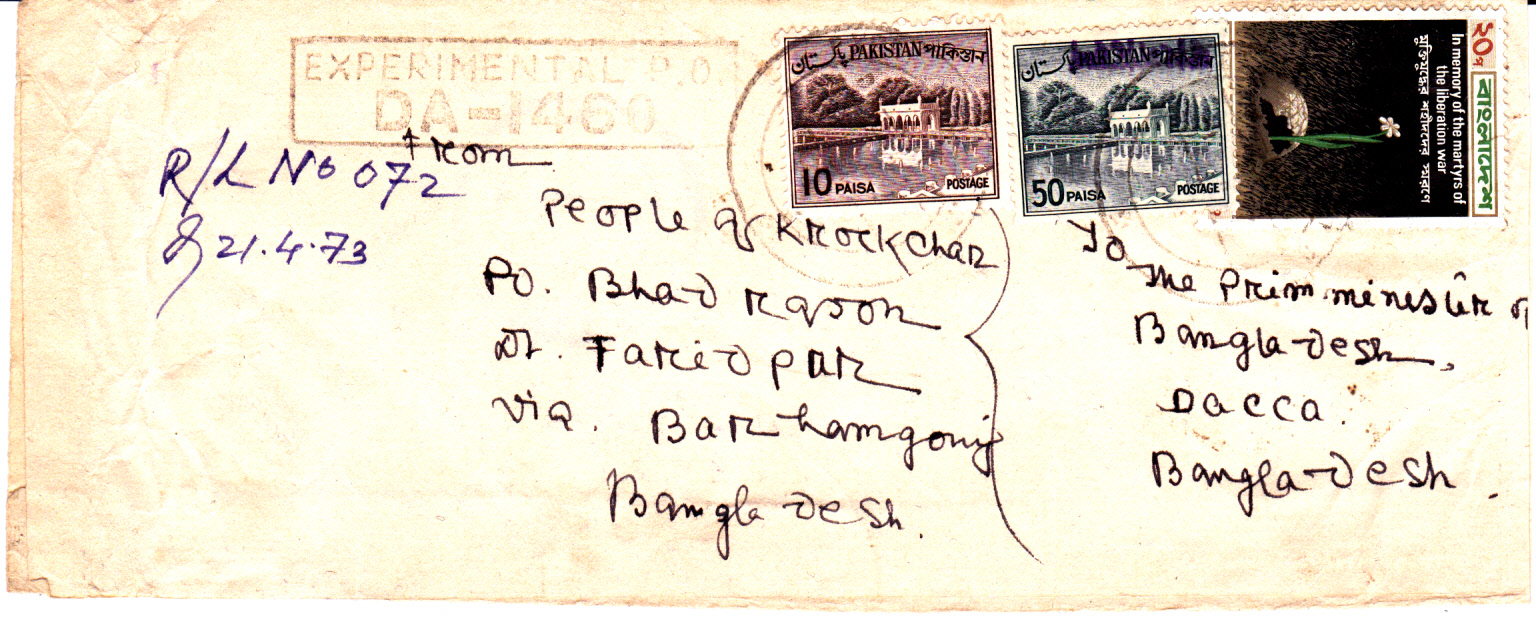 EXPERIMENTAL P.O
DA-1460
R/L No 072
21.4.73
From
People of Krockchar
Po. Bhadrason
Dt. Faridpur
Via. Barhamgonj
Bangladesh.
پاکستان PAKISTAN পাকিস্তান
10 PAISA POSTAGE
پاکستان PAKISTAN পাকিস্তান
50 PAISA POSTAGE
২০প
বাংলাদেশ
In memory of the martyrs of
the liberation war
মুক্তিযুদ্ধের শহীদদের স্মরণে
To
The Prim minister of
Bangladesh,
Dacca.
Bangladesh.